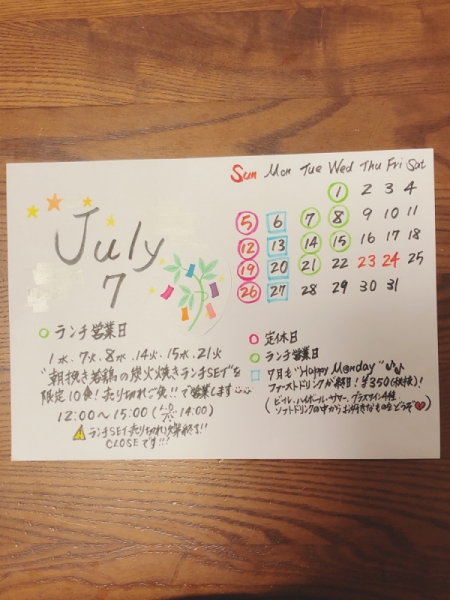 July
7
Sun Mon Tue Wed Thu Fri Sat
1 2 3 4
5 6 7 8 9 10 11
12 13 14 15 16 17 18
19 20 21 22 23 24 25
26 27 28 29 30 31
ランチ営業日
1水.7火.8水.14火.15水.21火
"朝挽き若鶏の炭火焼きランチSET"を
限定10食!売り切れご免!!で営業します
12:00〜15:00(L.O. 14:00)
ランチSET売り切れ次第終了!!
CLOSEです!!!
定休日
ランチ営業日
7月も"Happy Monday"♪♪
ファーストドリンクが終日!¥350(税抜)!
(ビール,ハイボール,サワー,グラスワイン4種
ソフトドリンクの中からお好きなものをどうぞ♥)